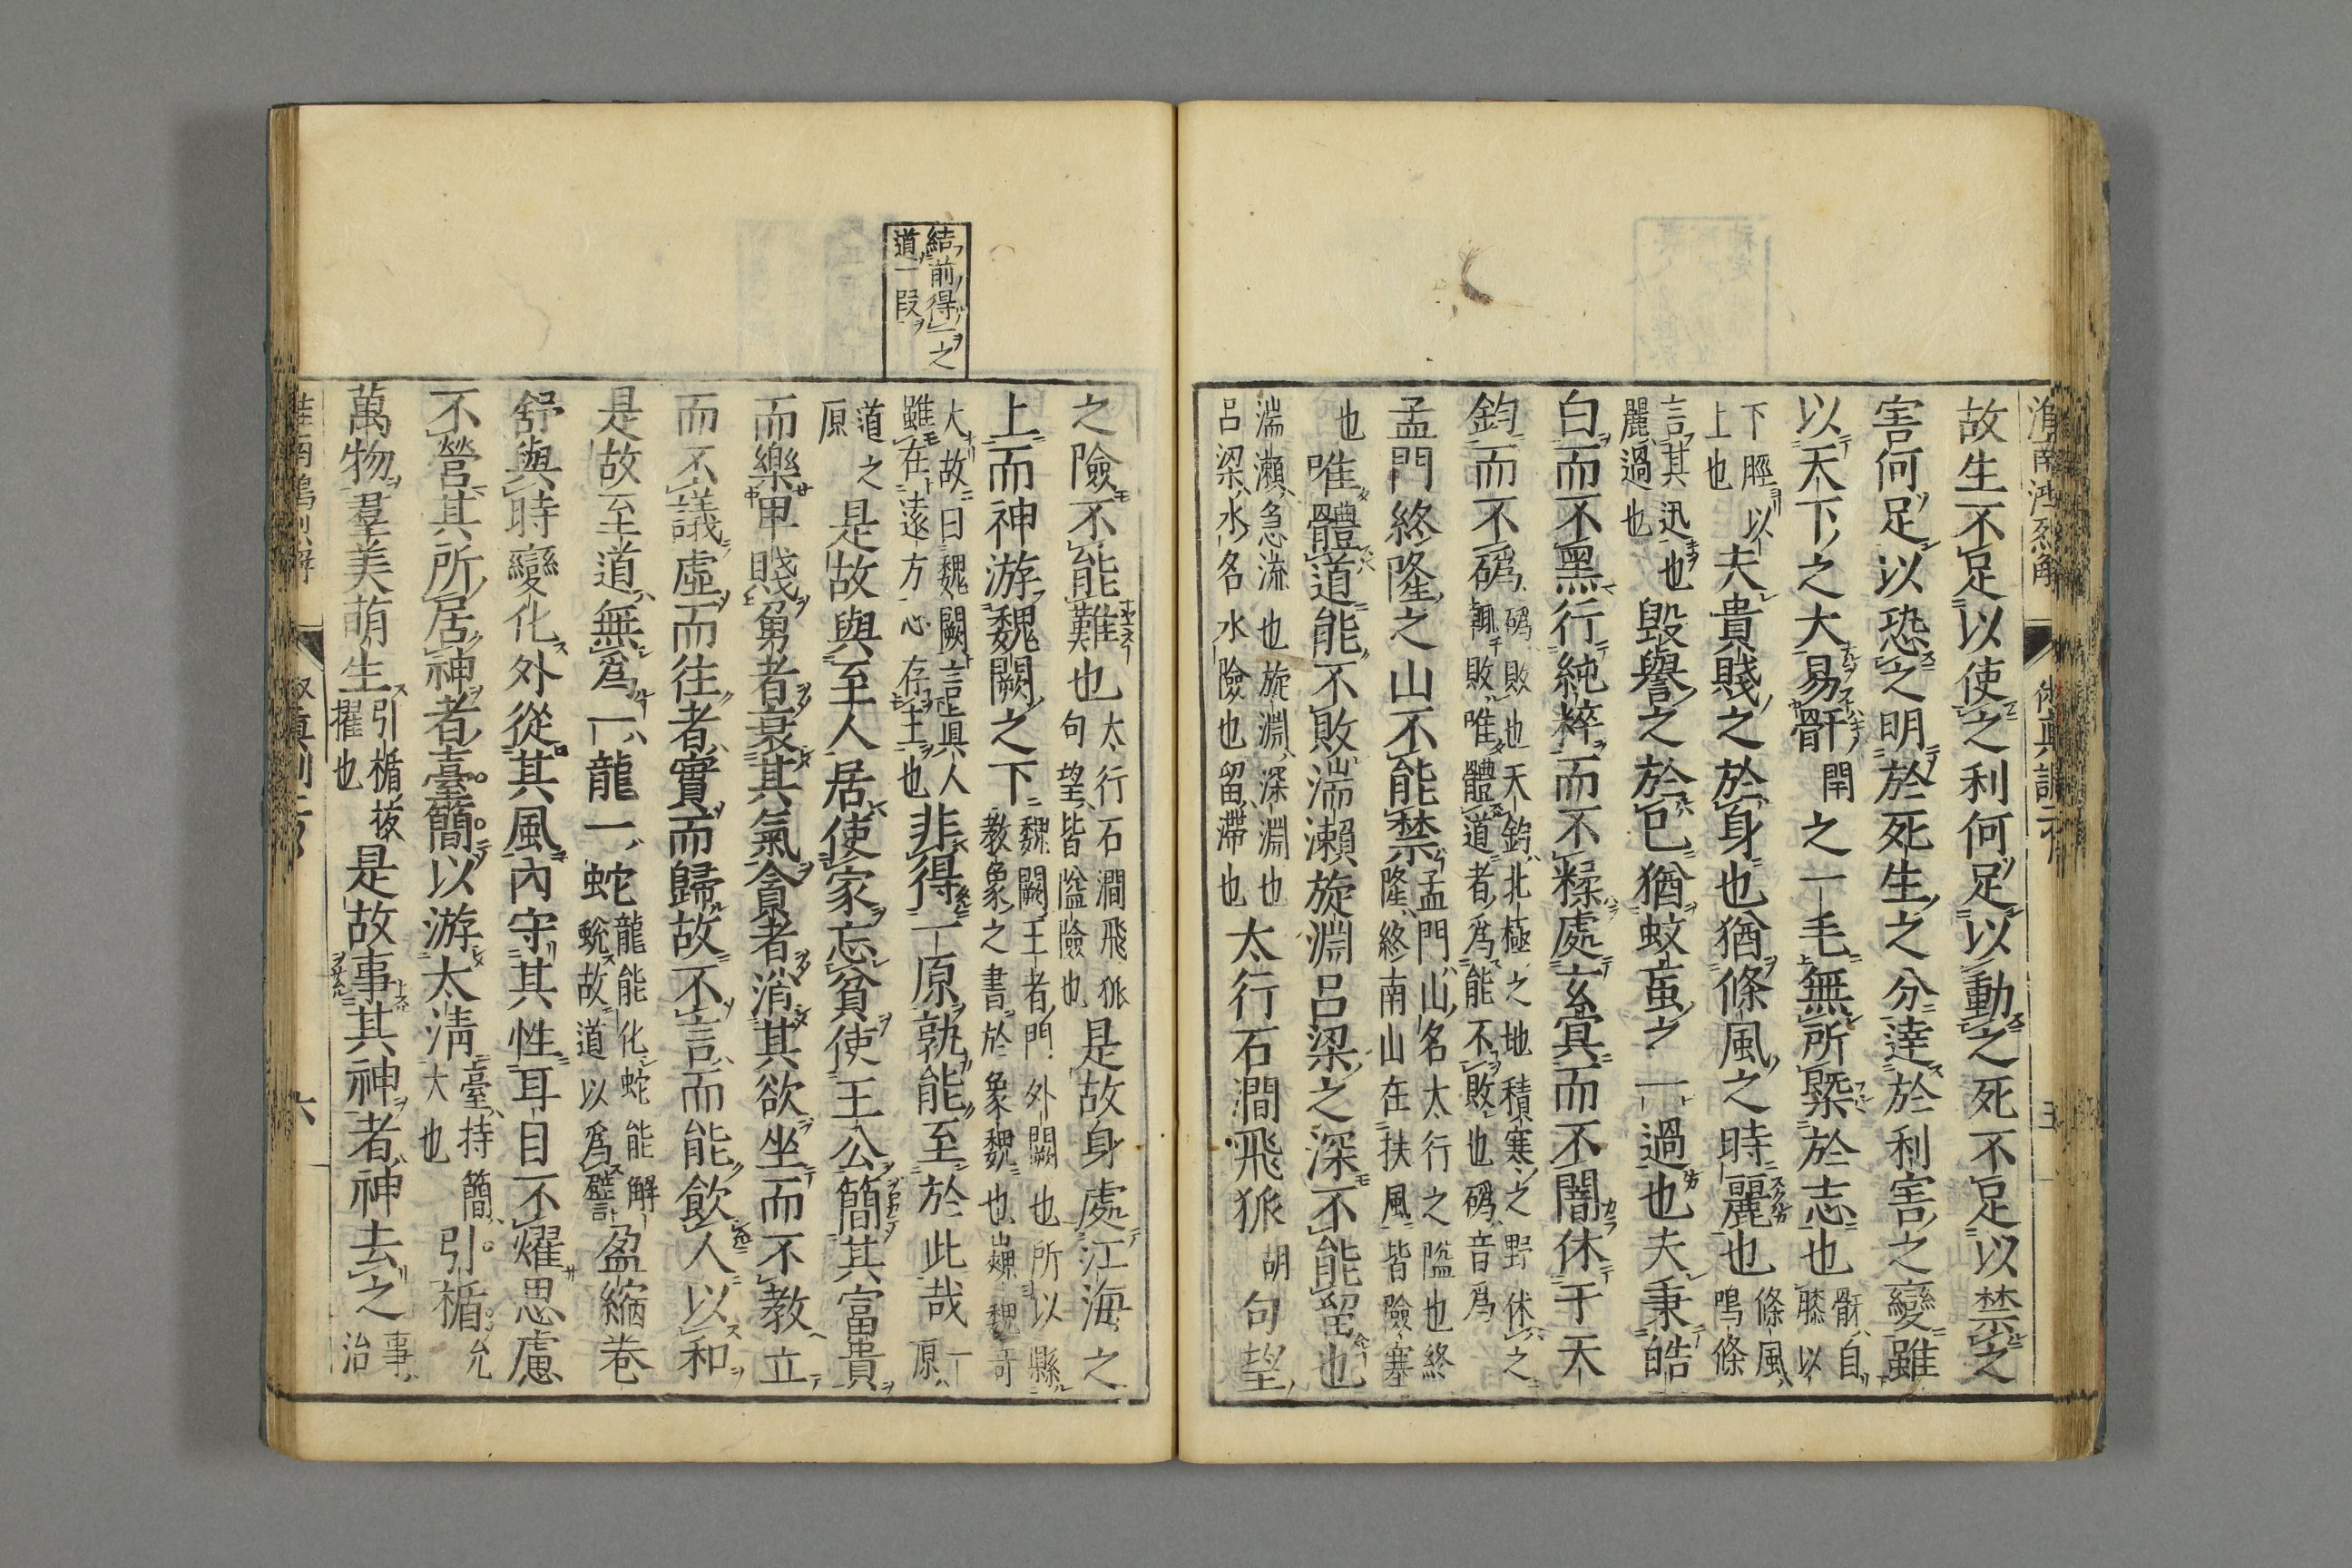 故生不足以使之利何足以動之死不足以禁之
害何足以恐之明於死生之分達於利害之變雖
以天下之大易骭開之一毛無所槩於志也骭自膝以
下脛以上也夫貴賤之於身也猶條風之時麗也條風鳴條
言其迅也麗過也毀譽之於已猶蚊䖟之一過也夫秉皓
白而不黑行純粹而不糅處玄冥而不闇休于天
鈞而不碼碼敗也天鈞北極之地積寒之野休之輒敗唯體道者爲能不敗也碼音爲
孟門終隆之山不能禁孟門山名太行之隘也終隆終南山在扶風皆險塞
也唯體道能不敗湍瀨旋淵呂梁之深不能留也
湍瀨急流也旋淵深淵也呂梁水名水險也留滯也太行石澗飛狐胡句望
之險不能難也太行石澗飛狐句望皆隘險也是故身處江海之
上而神游魏闕之下魏闕王者門外闕也所以縣教象之書於象魏也巍魏奇
大故曰魏闕言真人雖在遠方心存王也非得一原孰能至於此哉一原
道之原是故與至人居使家忘貧使王公簡其富貴
而樂卑賤勇者衰其氣貪者消其欲坐而不教立
而不議虛而往者實而歸故不言而能飲人以和
是故至道無爲一龍一蛇龍能化蛇能解蛻故道以爲譬計盈縮卷
舒與時變化外從其風內守其性耳目不燿思慮
不營其所居神者臺簡以游太清臺持簡大也引楯允
萬物羣美萌生引楯拔擢也是故事其神者神去之事治
結前得一之
道一段
六